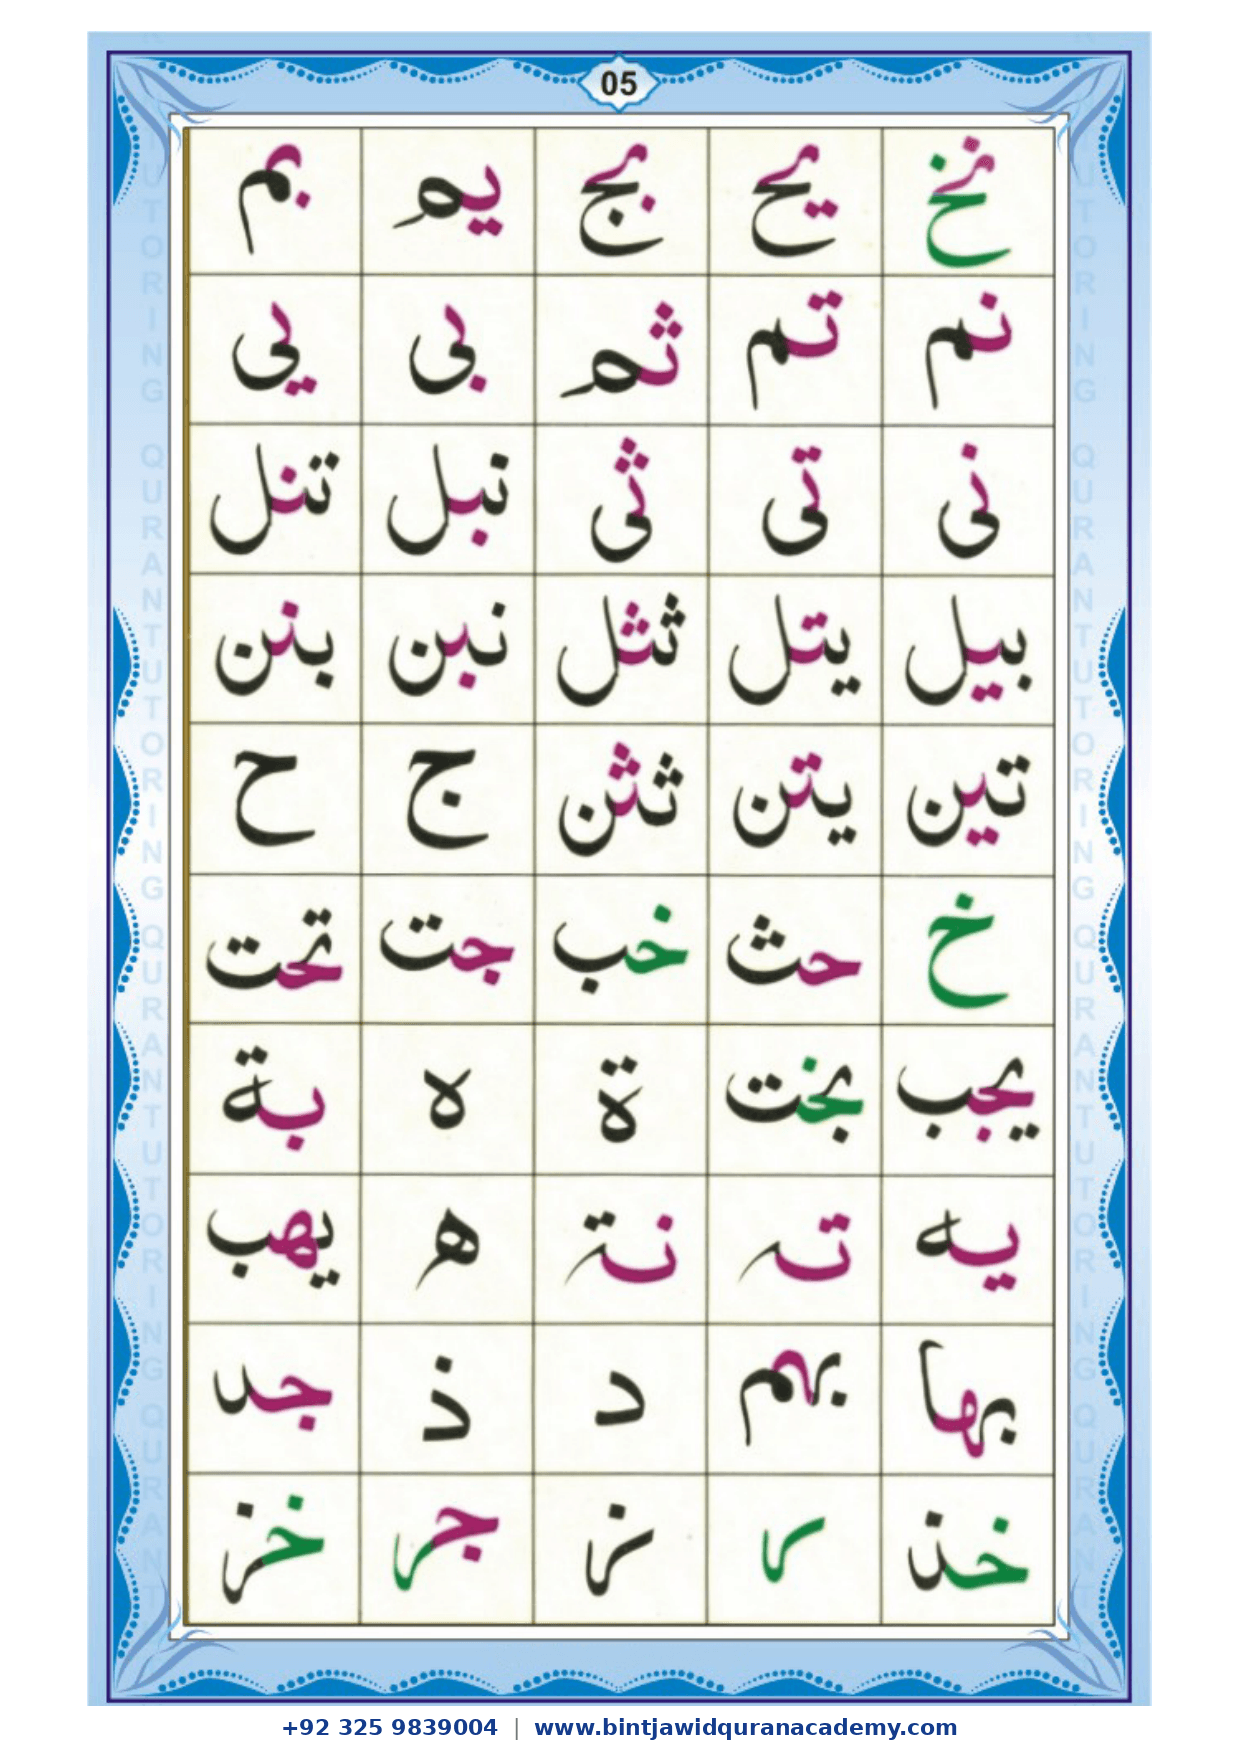 05
نخ يح بج يم بم
نم تم ثم بى يى
نى تى ثى نبل تنل
بيل يتل ثثل نبن بنن
تين يتن ثثن ج ح
خ حث خب جت تحت
يجب بخت ة ه بة
يه ته نة ه يهب
بها بهم د ذ جد
خذ ر ز جر خز
QURAN TUTORING QURAN TUTORING
+92 325 9839004 | www.bintjawidquranacademy.com